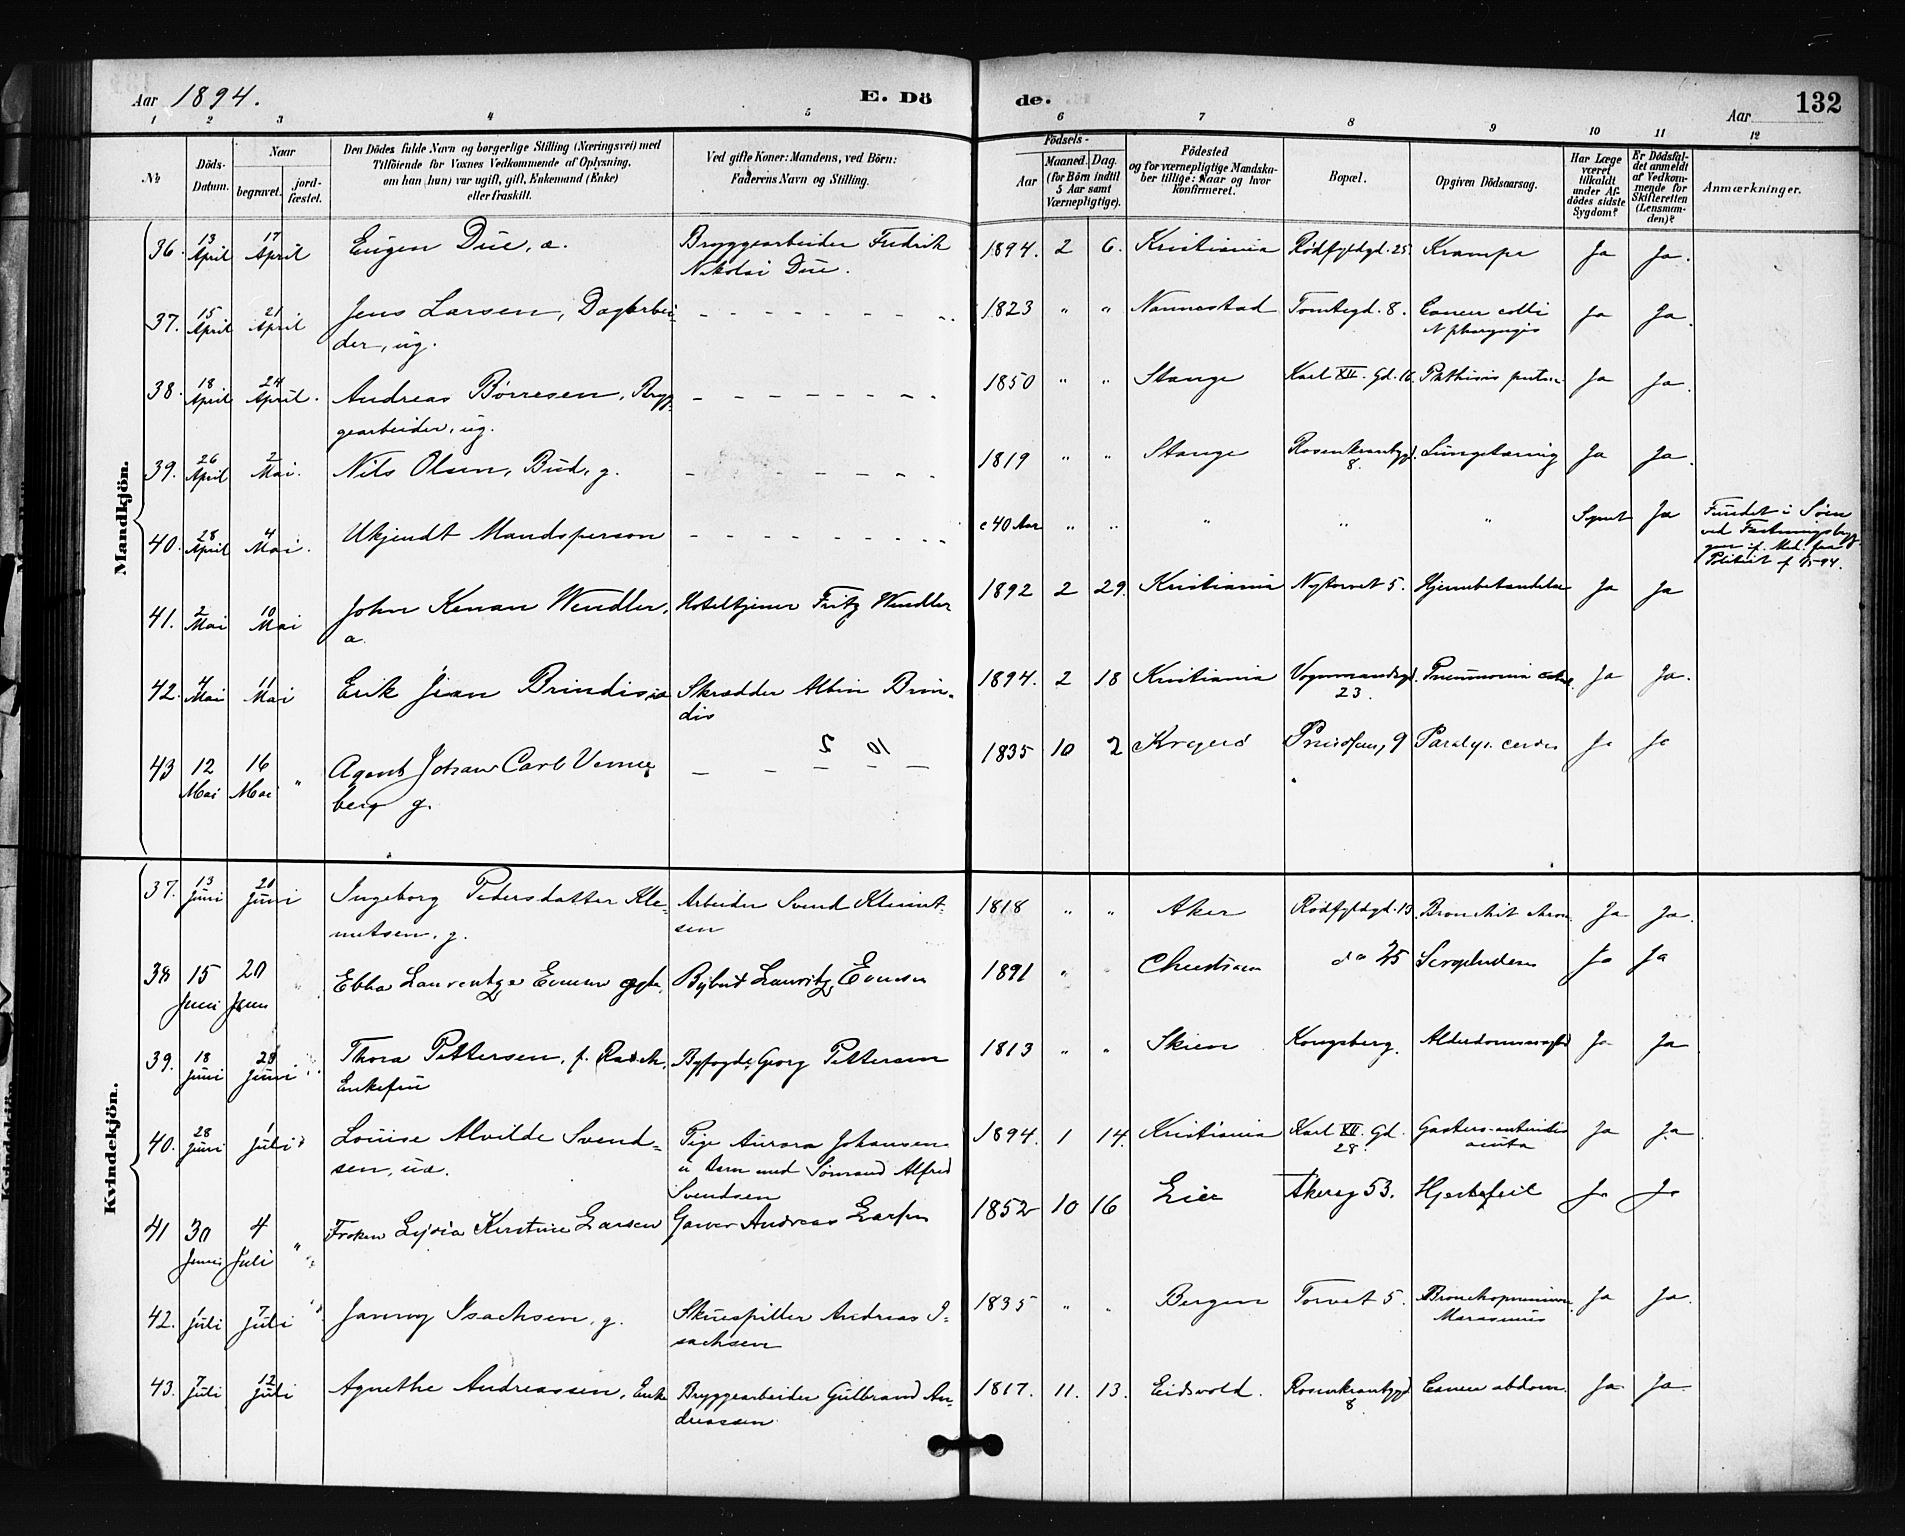 Aar 1894.
E. Dö
de.
Aar
132
1 2 3 4 5 6 7 8 9 10 11 12
№
Döds-Datum.
Naar
begravet.
jord-fæstet.
Den Dödes fulde Navn og borgerlige Stilling (Næringsvei) med
Tilföiende for Voxnes Vedkommende af Oplysning,
om han (hun) var ugift, gift, Enkemand (Enke)
eller fraskilt.
Ved gifte Koner: Mandens, ved Börn:
Faderens Navn og Stilling.
Födsels-
Aar
Maaned.
Dag.
(for Börn indtil
5 Aar samt
Værnepligtige).
Födested
og for værnepligtige Mandska-
ber tillige: Naar og hvor
konfirmeret.
Bopæl.
Opgiven Dödsaarsag.
Har Læge
været
tilkaldt
under Af-
dödes sidste
Sygdom?
Er Dödsfal-
det anmeldt
af Vedkom-
mende for
Skifteretten
(Lensman-
den)?
Anmærkninger.
Mandkjön.
36. 13 April 17 April Eugen Due, a. Bryggearbeider Fredrik
Nikolai Due. 1894. 2 6. Kristiania Rødfyldgd. 25. Krampe Ja Ja.
37. 15 April 21 April Jens Larsen, Dagarbei-
der, ug. 1823 " " Nannestad Tomtegd. 8. Cancer colli
pharyngis Ja Ja.
38. 18 April 24 April. Andreas Børresen, Bryg-
gearbeider, ug. 1850 " " Stange Karl XII. Gd. 16. Phthisis Ja Ja.
39. 26 April 2 Mai. Nils Olsen, Bud, g. 1819 " " Stange Rosenkrantzgd.
8. Lungetæring Ja Ja.
40. 28 April 4 Mai. Ukjendt Mandsperson c 40 Aar " " " " " Synet Ja Fundet i Søen
ved Fæstningsbryg-
gen if. Med. fra
Politiet
41. 2 Mai 10 Mai John Kenan Wendler,
a. Hoteltjener Fritz Wendler 1892 2 29. Kristiania Nytorvet 5. Hjernebetændelse Ja Ja
42. 4 Mai 11 Mai Erik Jean Brindis, a Skrædder Albin Brin-
dis 1894. 2 18 Kristiania Vognmandsgd.
23. Pneumonia Ja Ja.
43 12 Mai 16 Mai " Agent Johan Carl Verne
berg g. 1835 10 2 Kragerø 9 Paralys. Ja Ja
Kvindekjön.
37. 13 Juni 20 Juni Ingeborg Pedersdatter Kle-
metsen, g. Arbeider Svend Klemet-
sen 1818 " " Aker Rødfyldgd. 13. Bronchit chron Ja Ja.
38 15 Juni 20 Juni Ebba Laurentze Evensen Bybud Lauritz Evensen 1891 " " Christiania do 25 Ja Ja
39. 18 Juni 28 Juni Thora Pettersen, f. Rasch,
Enkefru Byfogd Georg Pettersen 1813 " " Skien Kongsberg. Alderdomssvaghed Ja Ja
40. 28 Juni 1 Juli Louise Alvilde Svend-
sen, ua. Pige Aurora Johansen
u. Barn med Sømand Alfred
Svendsen 1894. 1 14. Kristiania Karl XII. Gd.
28. Gastero-enteritis
acuta Ja Ja
41 30 Juni 4 Juli " Frøken Lydia Kirstine Larsen Garver Andreas Larsen 1852 10 16 Lier Akersg 53. Hjertefeil Ja Ja
42. 1 Juli 7 Juli Janny Isachsen, g. Skuespiller Andreas I-
sachsen 1835 " " Bergen Torvet 5. Bronchopneumon.
Marasmus Ja Ja.
43. 7 Juli 12 Juli Agnethe Andreassen, Enke Bryggearbeider Gulbrand An-
dreassen 1817. 11. 13. Eidsvold. Rosenkrantzgd
8 Cancer abdom. Ja Ja.